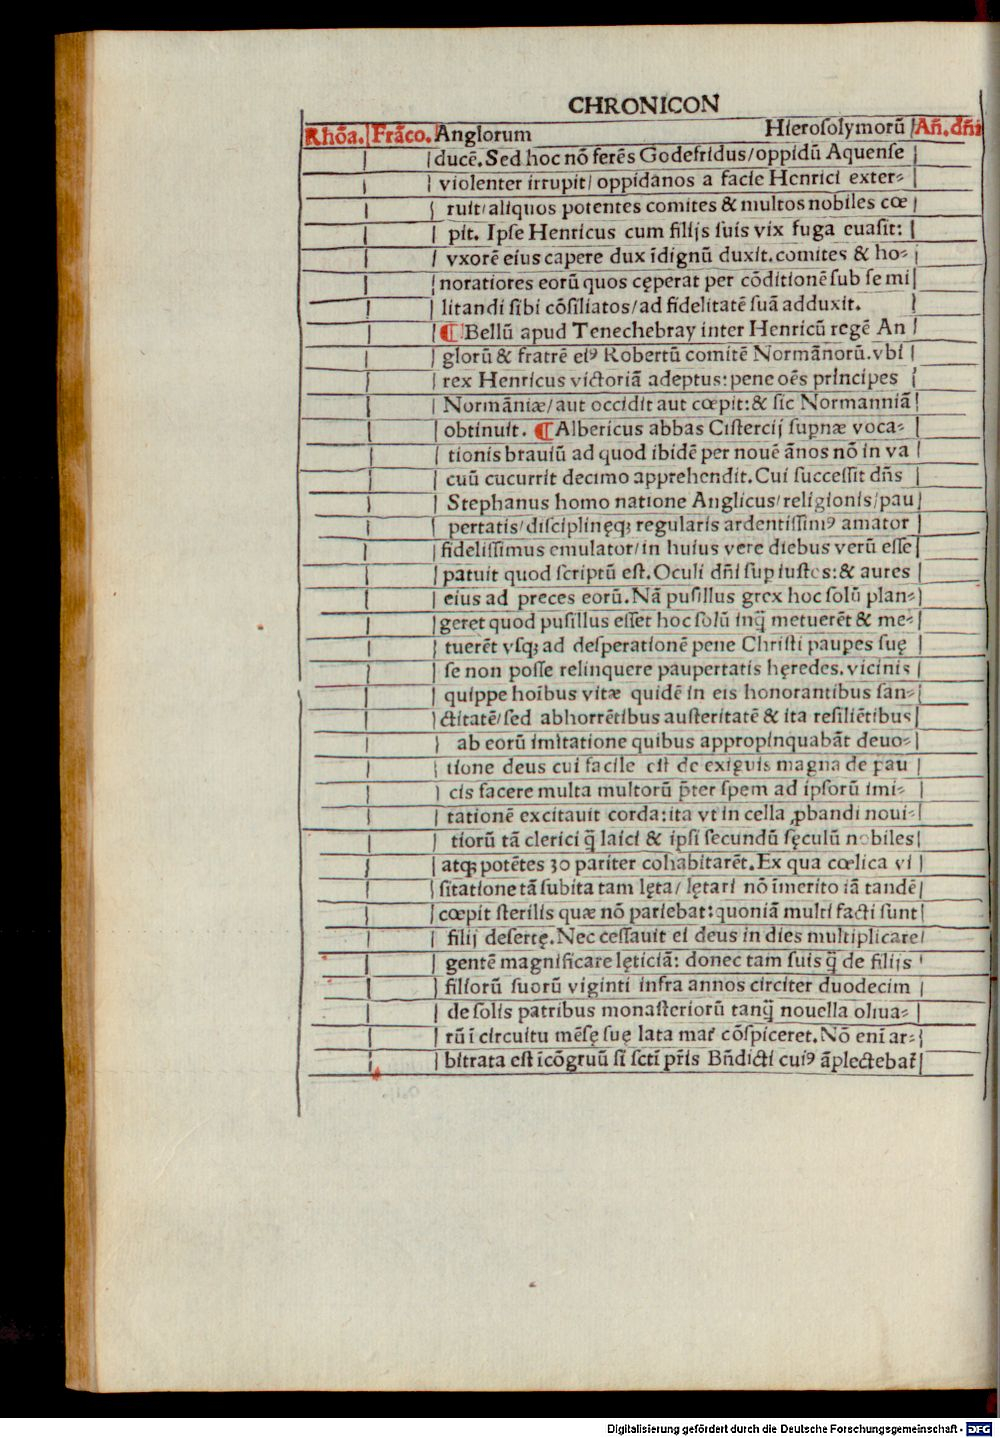 CHRONICON
Rhōa. Frāco. Anglorum Hieroſolymorū Añ.dñi
ducē. Sed hoc nō ferēs Godefridus/oppidū Aquenſe
violenter irrupit/ oppidanos a facie Henrici exter⸗
ruit/aliquos potentes comites & multos nobiles cœ
pit. Ipſe Henricus cum filijs ſuis vix fuga euaſit:
vxorē eius capere dux īdignū duxit. comites & ho⸗
noratiores eorū quos cęperat per cōditionē ſub ſe mi
litandi ſibi cōſiliatos/ad fidelitatē ſuā adduxit.
¶ Bellū apud Tenechebray inter Henricū regē An
glorū & fratrē eiꝰ Robertū comitē Normānorū. vbi
rex Henricus victoriā adeptus: pene oēs principes
Normāniæ/aut occidit aut cœpit: & ſic Normanniā
obtinuit. ¶ Albericus abbas Ciſtercij ſupnæ voca⸗
tionis brauiū ad quod ibidē per nouē ānos nō in va
cuū cucurrit decimo apprehendit. Cui ſucceſſit dñs
Stephanus homo natione Anglicus/religionis/pau
pertatis/diſciplinęqꝫ regularis ardentiſſimꝰ amator
fideliſſimus emulator/in huius vere diebus verū eſſe
patuit quod ſcriptū eſt. Oculi dñi ſup iuſtos: & aures
eius ad preces eorū. Nā puſillus grex hoc ſolū plan⸗
geret quod puſillus eſſet hoc ſolū inq̄ metuerēt & me⸗
tuerēt vſqꝫ ad deſperationē pene Chriſti paupes ſuę
ſe non poſſe relinquere paupertatis hęredes. vicinis
quippe hoībus vitæ quidē in eis honorantibus ſan⸗
ctitatē/ſed abhorrētibus auſteritatē & ita reſiliētibus
ab eorū imitatione quibus appropinquabāt deuo⸗
tione deus cui facile eſt de exiguis magna de pau
cis facere multa multorū p̄ter ſpem ad ipſorū imi⸗
tationē excitauit corda: ita vt in cella ꝓbandi noui⸗
tiorū tā clerici q̄ laici & ipſi ſecundū ſęculū nobiles
atqꝫ potētes 30 pariter cohabitarēt. Ex qua cœlica vi
ſitatione tā ſubita tam lęta/ lętari nō īmerito iā tandē
cœpit ſterilis quæ nō pariebat: quoniā multi facti ſunt
filij deſertę. Nec ceſſauit ei deus in dies multiplicare
gentē magnificare lęticiā: donec tam ſuis q̄ de filijs
filiorū ſuorū viginti infra annos circiter duodecim
de ſolis patribus monaſteriorū tanq̄ nouella oliua⸗
rū ī circuitu mēſę ſuę lata mat̄ cōſpiceret. Nō enī ar⸗
bitrata eſt īcōgruū ſi ſcti pr̄is Bñdicti cuiꝰ āplectebat̄
Digitalisierung gefördert durch die Deutsche Forschungsgemeinschaft - DFG